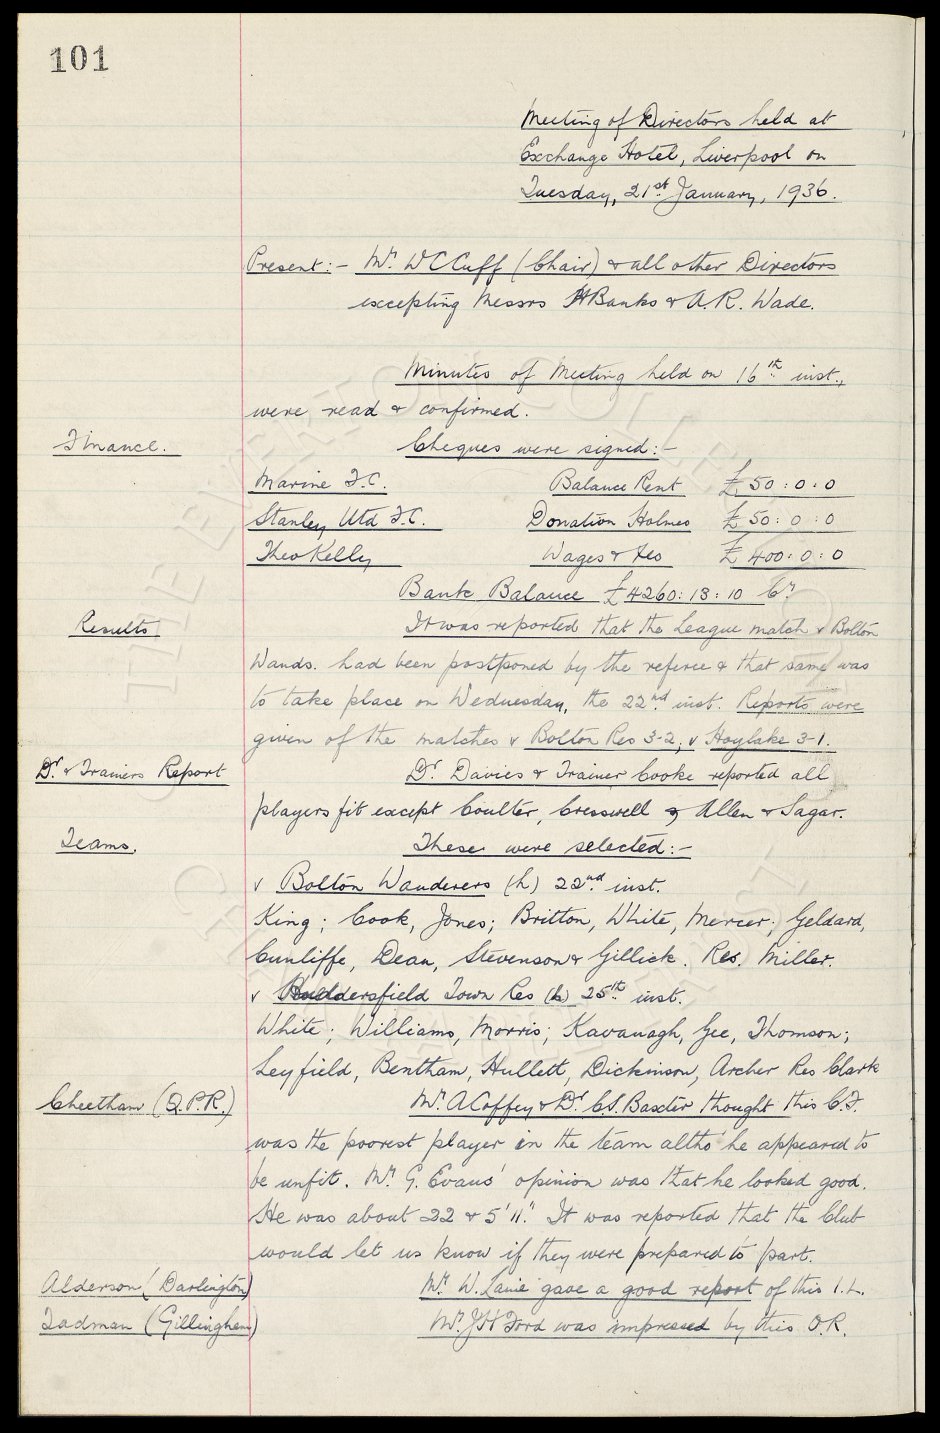 101
Meeting of Directors held at
Exchange Hotel, Liverpool on
Tuesday, 21st January, 1936.
Present:- Mr. W C Cuff (Chair) & all other Directors
excepting Messrs H Banks & A.R. Wade.
Minutes of Meeting held on 16th inst.,
were read & confirmed.
Finance. Cheques were signed:-
Marine F.C. Balance Rent £50:0:0
Stanley Utd F.C. Donation Holmes £50:0:0
Theo Kelly Wages & Fees £400:0:0
Bank Balance £4260:13:10 Cr
Results It was reported that the League match v Bolton
Wands. had been postponed by the referee & that same was
to take place on Wednesday, the 22nd inst. Reports were
given of the matches v Bolton Res 3-2, v Hoylake 3-1.
Dr. & Trainers Report Dr. Davies & Trainer Cooke reported all
players fit except Coulter, Cresswell, Allen & Sagar.
Teams. These were selected:-
v Bolton Wanderers (h) 22nd inst.
King; Cook, Jones; Britton, White, Mercer; Geldard,
Cunliffe, Dean, Stevenson & Gillick. Res. Miller.
v Huddersfield Town Res (h) 25th inst.
White; Williams, Morris; Kavanagh, Gee, Thomson;
Leyfield, Bentham, Hullett, Dickinson, Archer Res Clark
Cheetham (Q.P.R.) Mr. A Coffey & Dr. C.S. Baxter thought this C.F.
was the poorest player in the team altho' he appeared to
be unfit. Mr. G. Evans' opinion was that he looked good.
He was about 22 & 5'11". It was reported that the Club
would let us know if they were prepared to part.
Alderson (Darlington) Mr. W. gave a good report of this I.L.
Tadman (Gillingham) Mr. J H Ford was impressed by this O.R.
THE EVERTON COLLECTION